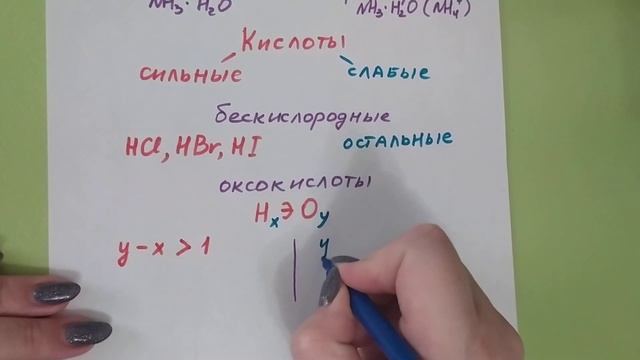 NH₃·H₂O NH₃·H₂O (NH₄⁺)
Кислоты
сильные слабые
бескислородные
HCl, HBr, HI остальные
оксокислоты
HₓЭOᵧ
y-x > 1 y